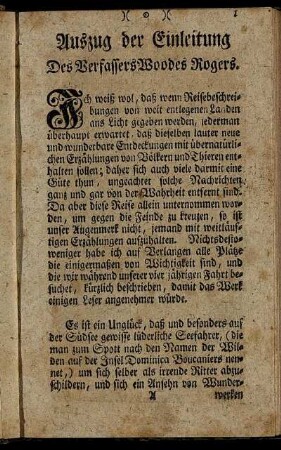 )( o )( 1
Auszug der Einleitung
Des Verfassers Woodes Rogers.
Ich weiß wol, daß wenn Reisebeschrei-
bungen von weit entlegenen Landen
ans Licht gegeben werden, jederman
überhaupt erwartet, daß dieselben lauter neue
und wunderbare Entdeckungen mit übernatürli-
chen Erzählungen von Völkern und Thieren ent-
halten sollen; daher sich auch viele darmit eine
Güte thun, ungeachtet solche Nachrichten
ganz und gar von der Wahrheit entfernt sind.
Da aber diese Reise allein unternommen wor-
den, um gegen die Feinde zu kreuzen, so ist
unser Augenmerk nicht, jemand mit weitläuf-
tigen Erzählungen aufzuhalten. Nichtsdesto-
weniger habe ich auf Verlangen alle Plätze
die einigermaßen von Wichtigkeit sind, und
die wir während unserer vier jährigen Fahrt be-
suchet, kürzlich beschrieben, damit das Werk
einigen Leser angenehmer würde.
Es ist ein Unglück, daß und besonders auf
der Südsee gewisse lüderliche Seefahrer, (die
man zum Spott nach den Namen der Wil-
den auf der Insel Dominica Boucaniers nen-
net,) um sich selber als irrende Ritter abzu-
schildern, und sich ein Ansehn von Wunder-
A werken